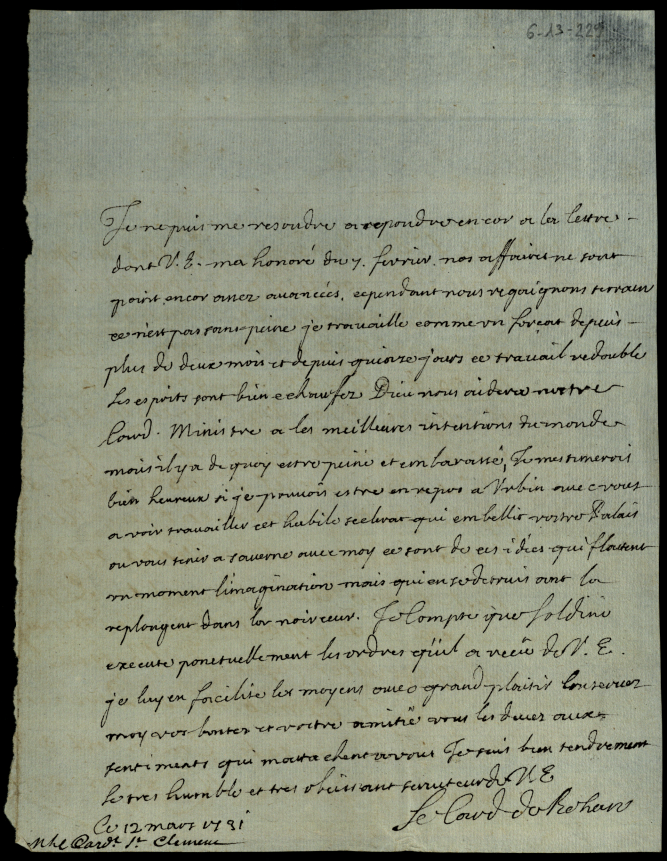 6-13-229
Je ne puis me resoudre a repondre encor a la lettre
dont V. E. m'a honoré du 7. fevrier. nos affaires ne sont
point encor assez avancées, cependant nous regaignons terrain
ce n'est pas sans peine je travaille comme un forçat depuis
plus de deux mois et depuis quinze jours ce travail redouble
les esprits sont bien echauffez Dieu nous aidera notre
Card. Ministre a les meilleures intentions du monde
mais il y a de quoy estre peiné et embarassé, Je m'estimerois
bien heureux si je pouvois estre en repos a Urbin avec vous
a voir travailler cet habile scelerat qui embellit vostre Palais
ou vous tenir a saverne avec moy ce sont de ces idées qui flattent
un moment l'imagination mais qui en se detruisant la
replongent dans la noirceur. Je compte que Soldini
execute ponctuellement les ordres qu'il a receu de V. E.
je luy en facilite les moyens avec grand plaisir conservez
moy vos bontez et vostre amitié vous les devez aux
sentiments qui m'attachent a vous Je suis bien tendrement
le tres humble et tres obeissant serviteur de V. E
Le Card de Rohan
Ce 12 mars 1731
Mr le Card. St Clement